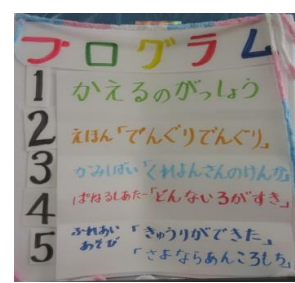 プログラム
1 かえるのがっしょう
2 えほん「でんぐりでんぐり」
3 かみしばい「くれよんさんのけんか」
4 ぱねるしあたー「どんないろがすき」
5 ふれあい
あそび
「きゅうりができた」
「さよならあんころもち」